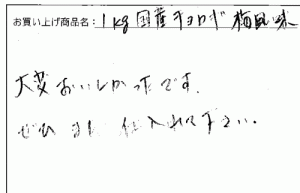 お買い上げ商品名：1kg 国産チョロギ 梅風味
大変おいしかったです。
ぜひ また 仕入れて下さい。